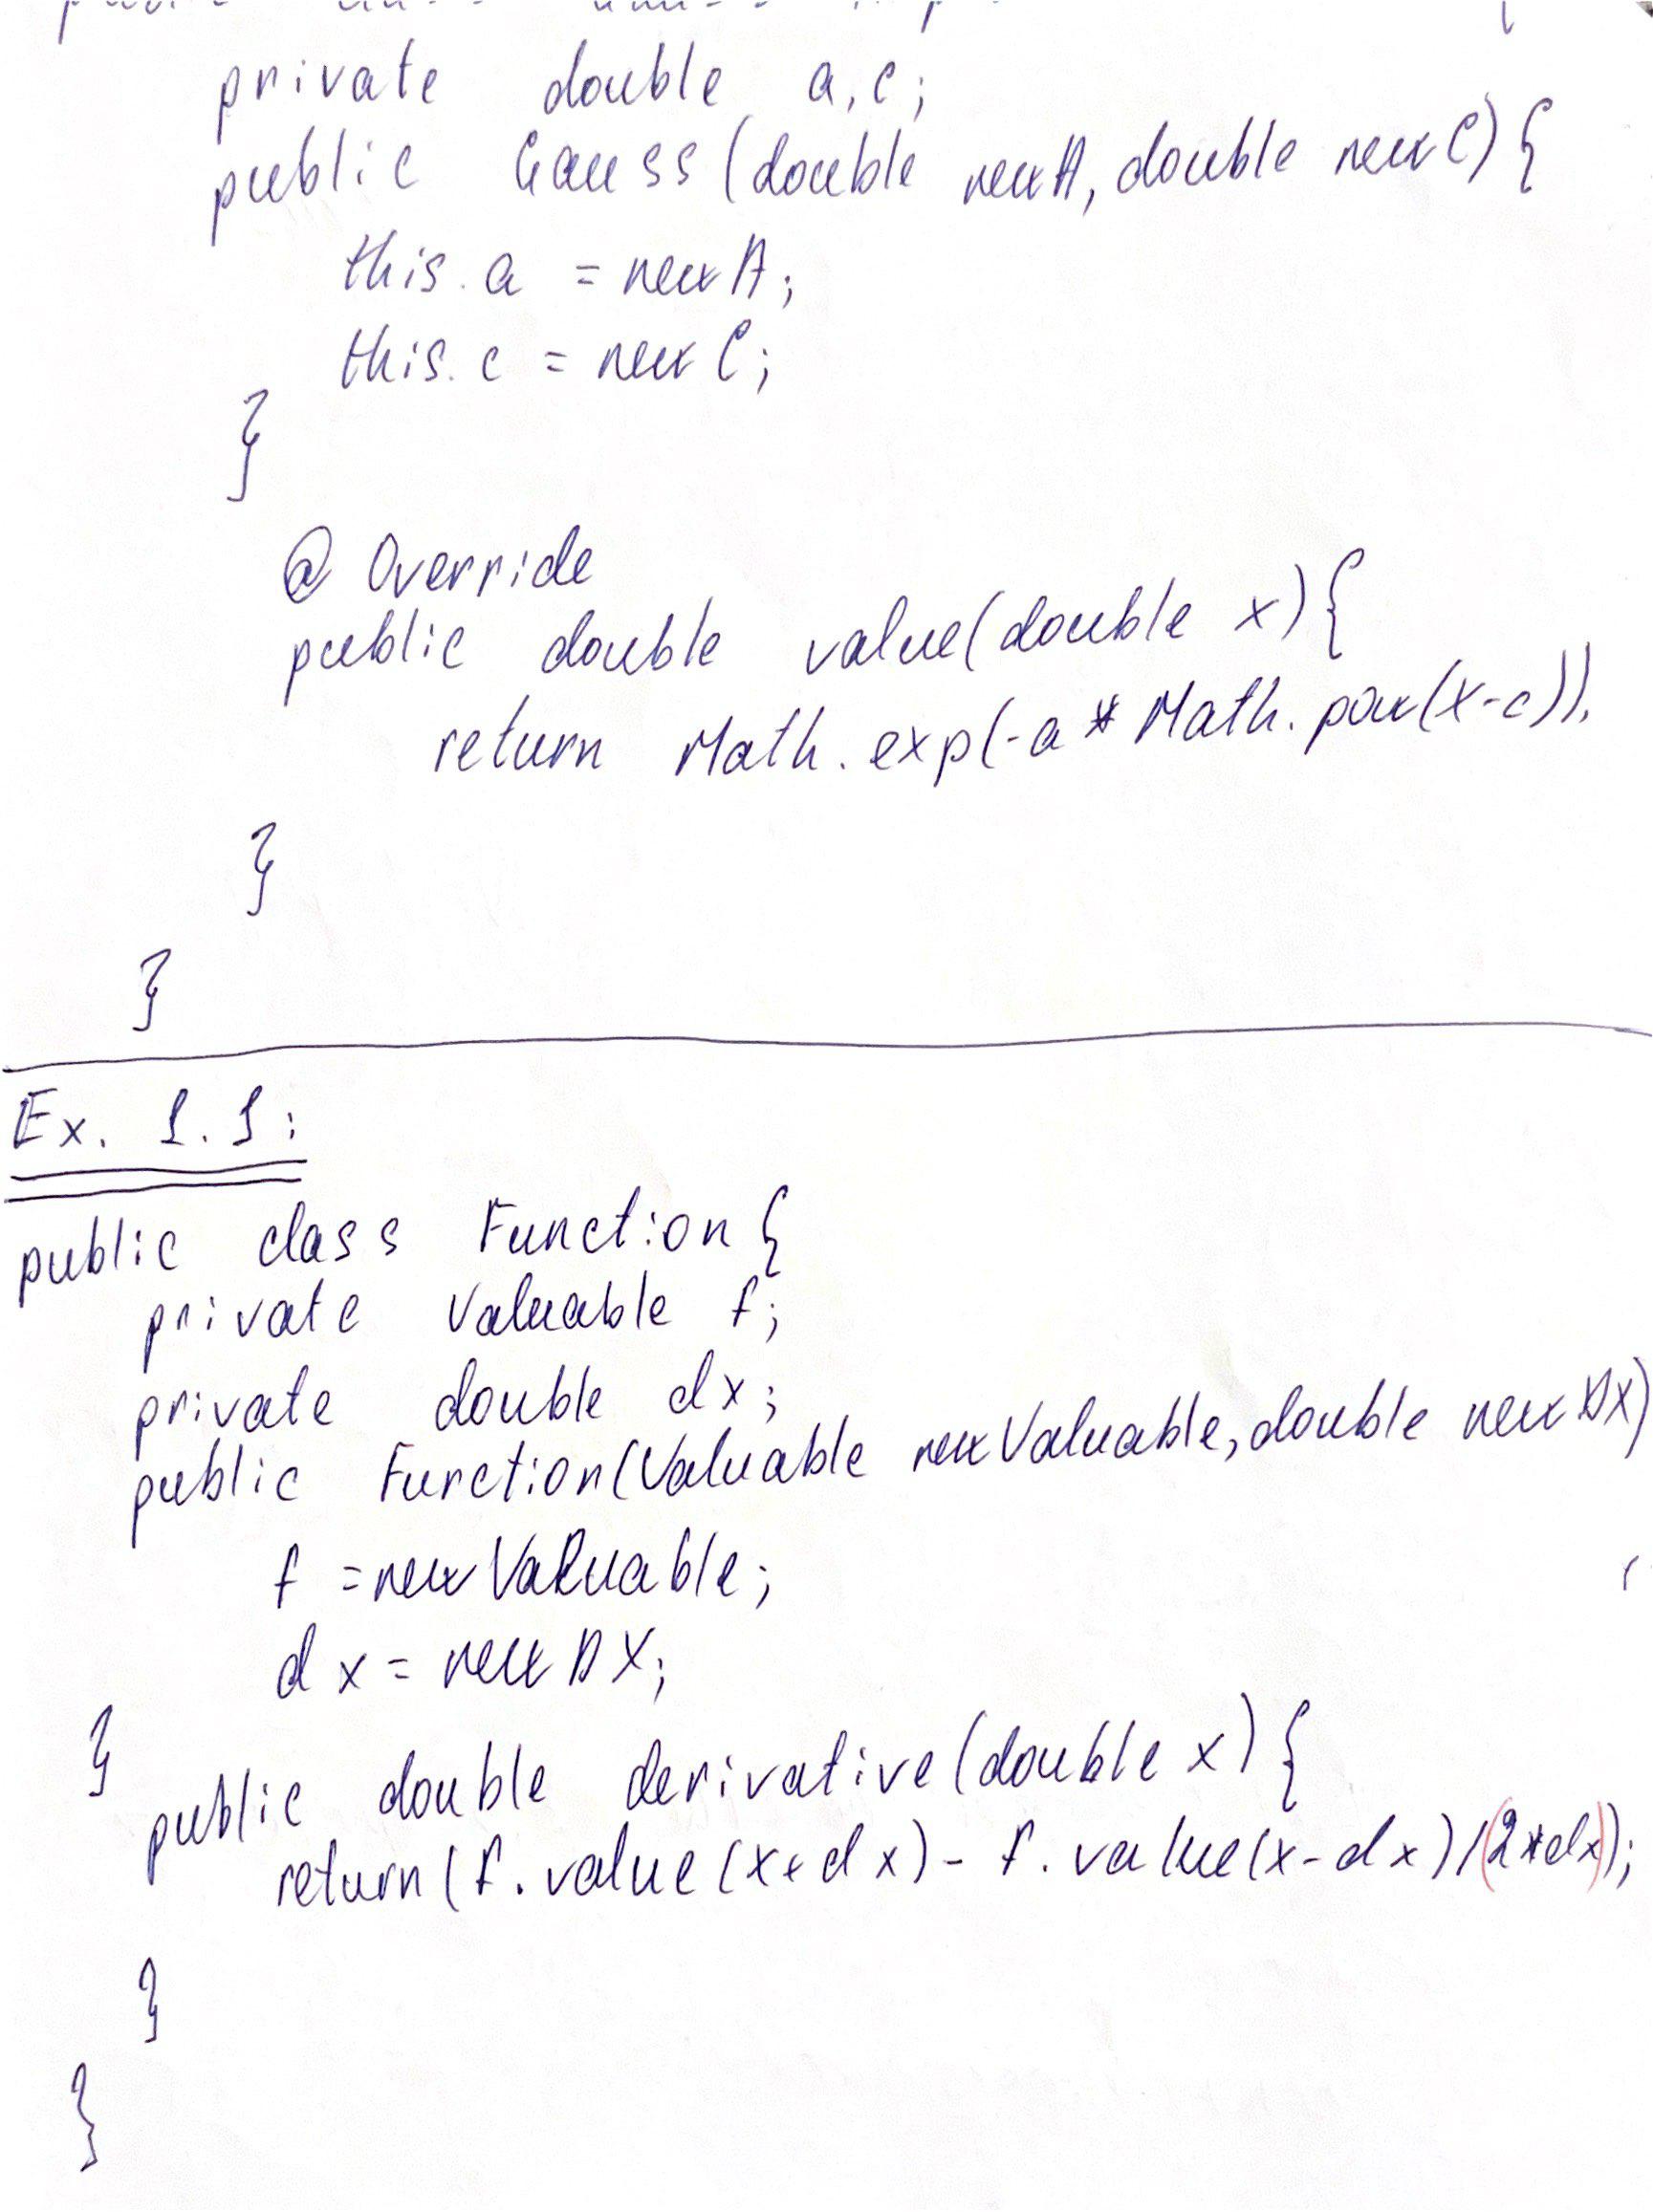 private double a,c;
public Gauss(double newA, double newC){
this.a = newA;
this.c = newC;
}
@Override
public double value(double x){
return Math.exp(-a * Math.pow(x-c));
}
}
Ex. 1.1:
public class Function{
private Valuable f;
private double dx;
public Function(Valuable newValuable, double newDX)
f = newValuable;
dx = newDX;
}
public double derivative(double x){
return(f.value(x+dx) - f.value(x-dx)/(2*dx));
}
}